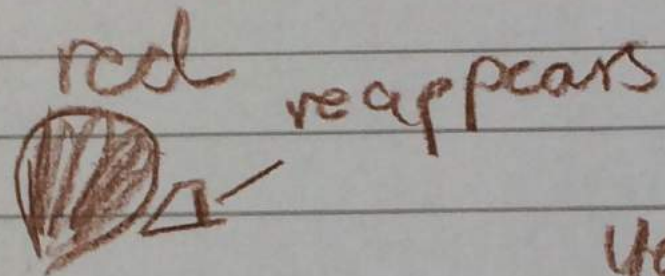 red
reappears